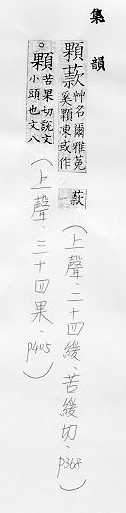 集韻
顆款艸名爾雅菟
奚顆凍或作𦼮
(上聲·二十四緩·苦緩切·p368)
○顆苦果切說文
小頭也文八
(上聲·三十四果·p405)